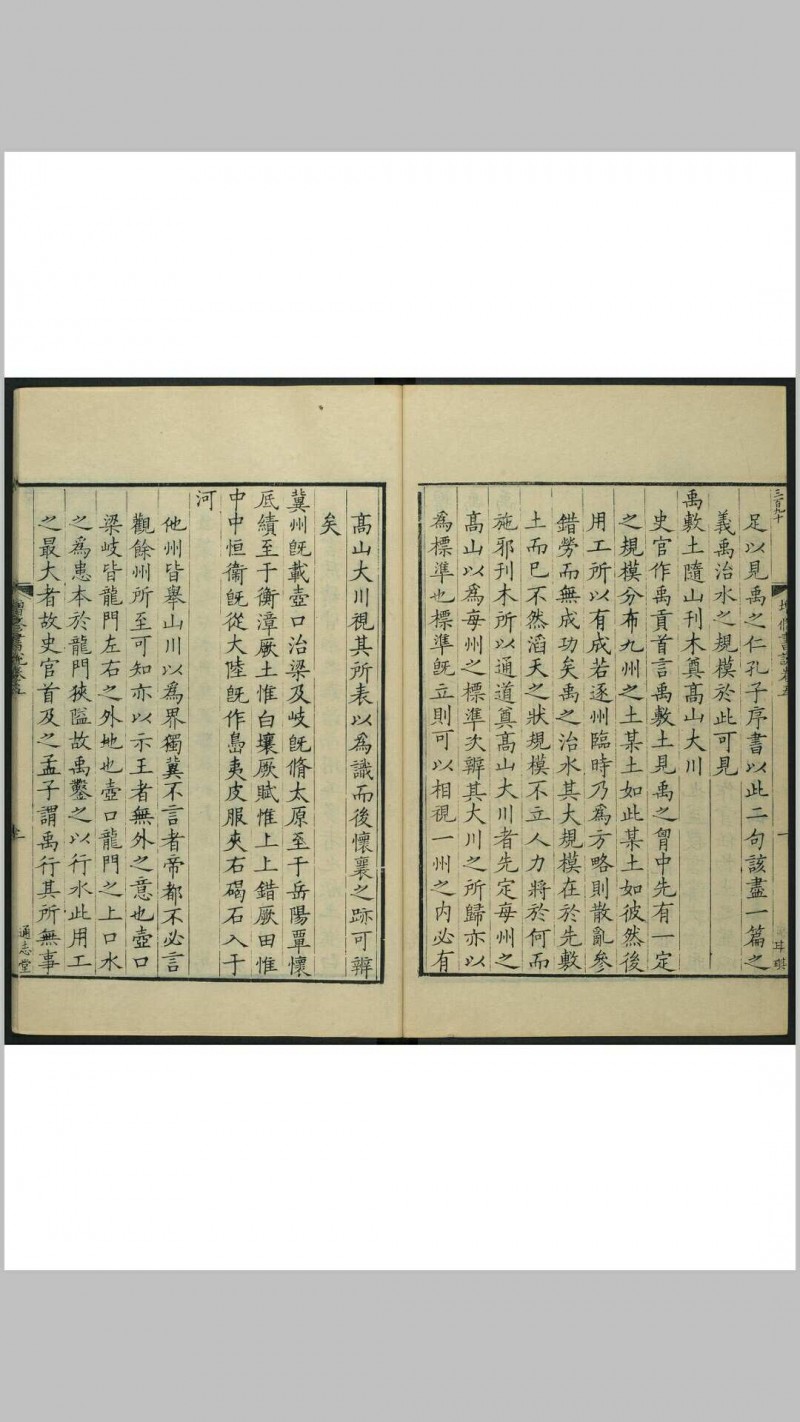 三百九十
足以見禹之仁孔子序書以此二句該盡一篇之
義禹治水之規模於此可見
禹敷土隨山刊木奠髙山大川
史官作禹貢首言禹敷土見禹之胷中先有一定
之規模分布九州之土某土如此某土如彼然後
用工所以有成若逐州臨時乃為方略則散亂參
錯勞而無成功矣禹之治水其大規模在於先敷
土而已不然滔天之狀規模不立人力將於何而
施邪刊木所以通道奠髙山大川者先定每州之
髙山以為每州之標準次辨其大川之所歸亦以
為標準也標準旣立則可以相視一州之内必有
髙山大川視其所表以為識而後懷襄之跡可辨
矣
冀州旣載壺口治梁及岐旣脩太原至于岳陽覃懷
厎績至于衡漳厥土惟白壤厥賦惟上上錯厥田惟
中中恒衞旣從大陸旣作島夷皮服夾右碣石入于
河
他州皆舉山川以為界獨冀不言者帝都不必言
觀餘州所至可知亦以示王者無外之意也壺口
梁岐皆龍門左右之外地也壺口龍門之上口水
之為患本於龍門狹隘故禹鑿之以行水此用工
之最大者故史官首及之孟子謂禹行其所無事
通志堂